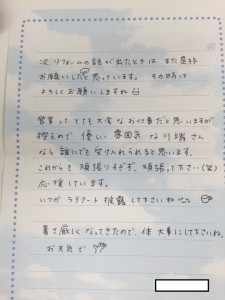 次 リフォームの話が出たときは また是非
お願いしたいと思っています。 その時は
よろしくお願いしますね
営業って とても大変なお仕事だと思いますが
控えめで 優しい 雰囲気 な川端さん
なら誰にでも受け入れられると思います。
これからも 頑張りすぎず、頑張って下さい(笑)
応援しています。
いつか ラテアート 披露して下さいね
暑さ厳しくなってきたので、体 大事にして下さいね。
お元気で